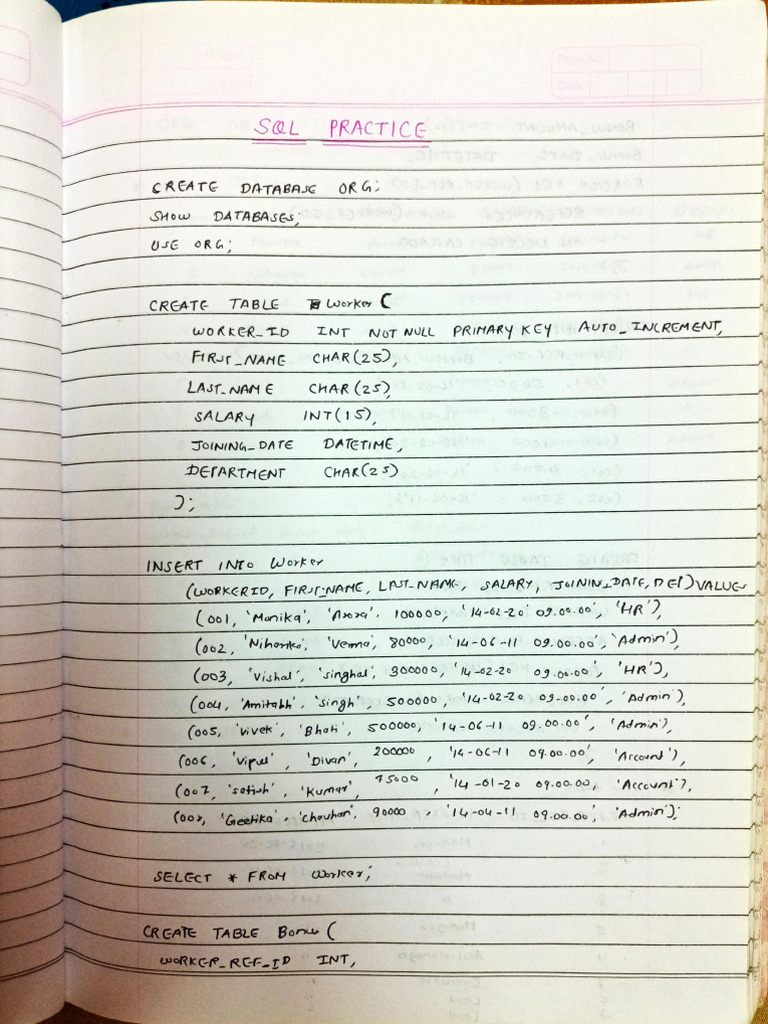 Page No.
Date
SQL PRACTICE
CREATE DATABASE ORG;
SHOW DATABASES;
USE ORG;
CREATE TABLE Worker (
WORKER_ID INT NOT NULL PRIMARY KEY AUTO_INCREMENT,
FIRST_NAME CHAR(25),
LAST_NAME CHAR(25),
SALARY INT(15),
JOINING_DATE DATETIME,
DEPARTMENT CHAR(25)
);
INSERT INTO Worker
(WORKERID, FIRST_NAME, LAST_NAME, SALARY, JOININ_DATE, DEP) VALUES
(001, 'Monika', 'Arora', 100000, '14-02-20 09.00.00', 'HR'),
(002, 'Niharika', 'Verma', 80000, '14-06-11 09.00.00', 'Admin'),
(003, 'Vishal', 'singhal', 300000, '14-02-20 09.00.00', 'HR'),
(004, 'Amitabh', 'singh', 500000, '14-02-20 09.00.00', 'Admin'),
(005, 'Vivek', 'Bhati', 500000, '14-06-11 09.00.00', 'Admin'),
(006, 'Vipul', 'Divan', 200000, '14-06-11 09.00.00', 'Account'),
(007, 'satish', 'Kumar', 75000, '14-01-20 09.00.00, 'Account'),
(008, 'Geetika', 'chauhan', 90000, '14-04-11 09.00.00', 'Admin');
SELECT * FROM Worker;
CREATE TABLE Bonus (
WORKER_REF_ID INT,